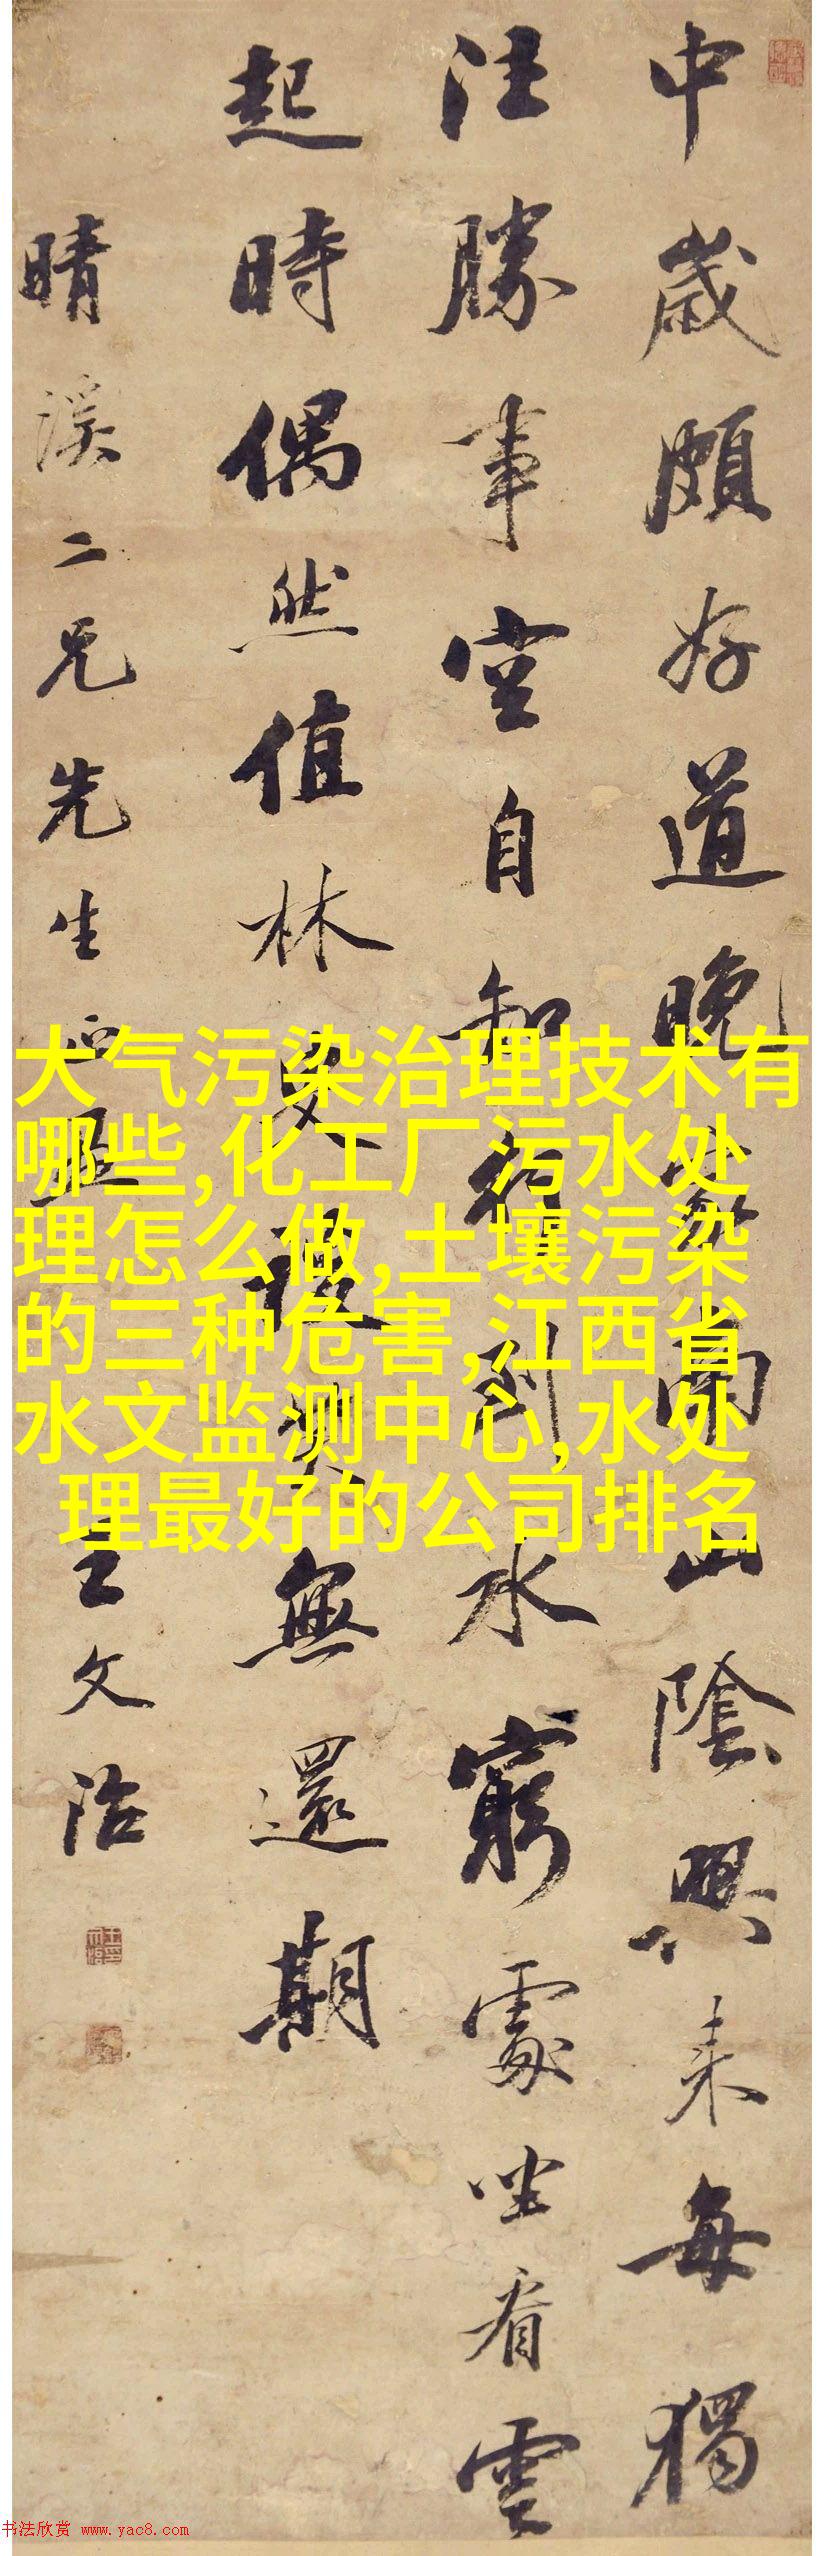 中歲頗好道晚家南山陰興來每獨
往勝事空自知行到水窮處坐看雲
起時偶然值林叟談笑無還期
晴溪二兄先生 王文治
大气污染治理技术有
哪些,化工厂污水处
理怎么做,土壤污染
的三种危害,江西省
水文监测中心,水处
理最好的公司排名
书法欣赏 www.yac8.com